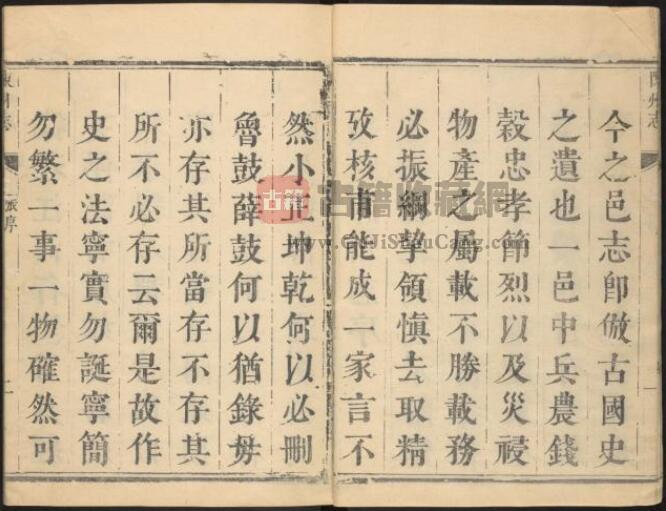 州志
今之邑志卽倣古國史
之遺也一邑中兵農錢
穀忠孝節烈以及災祲
物產之屬載不勝載務
必振綱挈領慎去取精
攷核甫能成一家言不
然小正坤乾何以必刪
魯鼓薛鼓何以猶錄毋
亦存其所當存不存其
所不必存云爾是故作
史之法寧實勿誕寧簡
勿繁一事一物確然可
州志
序
古籍
古籍收藏網
www.GuJiShouCang.com